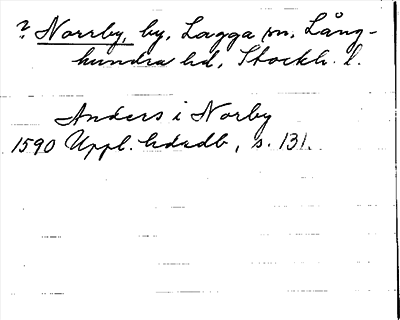 ? Norrby, by, Lagga sn, Lång-
hundra hd, Stockh. l.
Anders i Norby
1590 Uppl. hdrdb, s. 131.